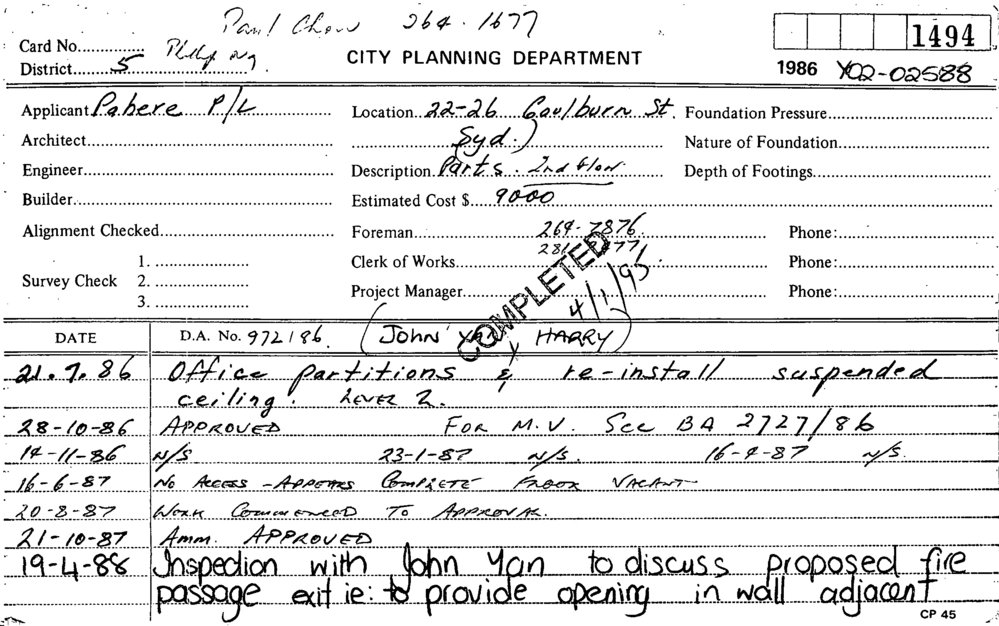 Paul Chow 264-1677
Card No.
Phillip Ng
CITY PLANNING DEPARTMENT
1494
District 5
1986 YO2-02588
Applicant Pabere P/L
Location 22-26 Goulburn St.
Foundation Pressure
Architect
Syd.)
Nature of Foundation
Engineer
Description Parts. 2nd floor
Depth of Footings
Builder
Estimated Cost $ 9000
Alignment Checked
Foreman 264-7876
Phone:
281 771
1.
Clerk of Works
Phone:
Survey Check 2.
Project Manager
Phone:
3.
COMPLETED
4/1/93
DATE
D.A. No. 972/86
(JOHN YAN, HARRY)
21.7.86 Office partitions & re-install suspended
ceiling. LEVEL 2.
28-10-86 APPROVED FOR M.V. See BA 2727/86
14-11-86 N/S 23-1-87 N/S. 16-4-87 N/S.
16-6-87 NO ACCESS - APPEARS COMPLETE FLOOR VACANT
20-8-87 WORK COMMENCED TO APPROVAL.
21-10-87 Amm. APPROVED
19-4-88 Inspection with John Yan to discuss proposed fire
passage exit ie: to provide opening in wall adjacent
CP 45